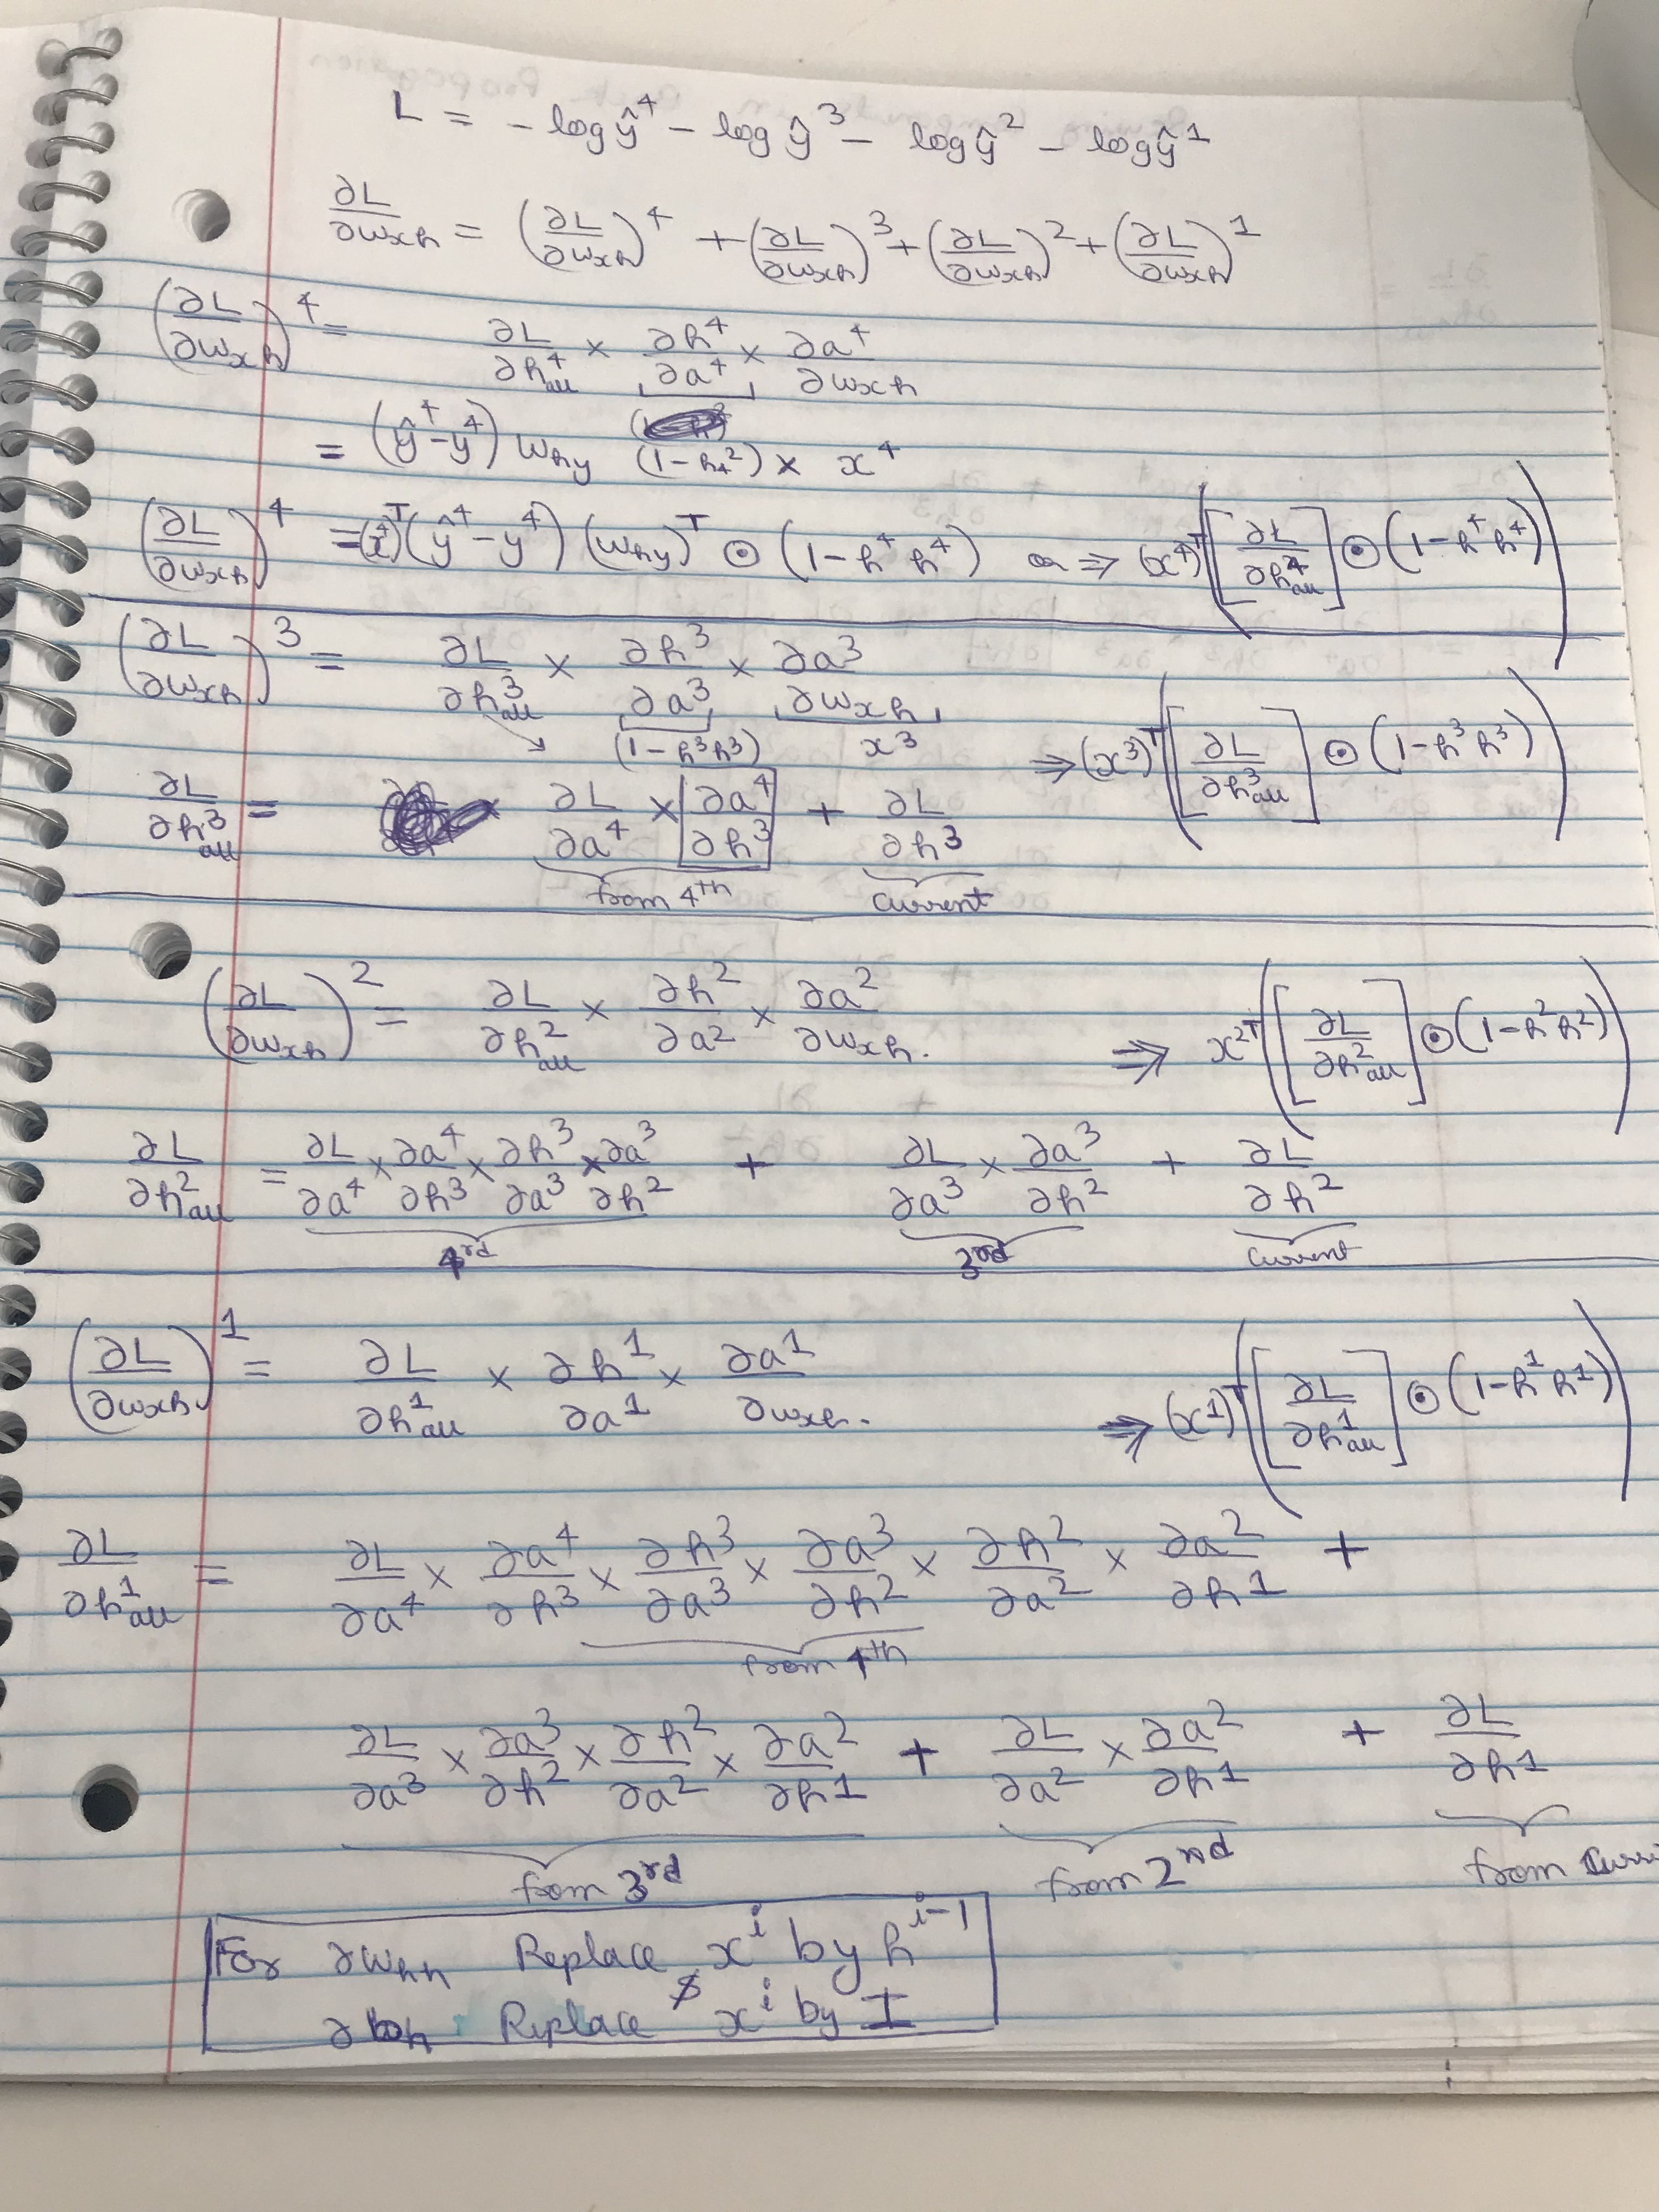 L = - log ŷ⁴ - log ŷ³ - log ŷ² - log ŷ¹
∂L/∂w_xh = (∂L/∂w_xh)⁴ + (∂L/∂w_xh)³ + (∂L/∂w_xh)² + (∂L/∂w_xh)¹
(∂L/∂w_xh)⁴ = ∂L/∂h⁴_all × ∂h⁴/∂a⁴ × ∂a⁴/∂w_xh
= (ŷ⁴ - y⁴) w_hy (1 - h₄²) × x⁴
(∂L/∂w_xh)⁴ = (x⁴)ᵀ (ŷ⁴ - y⁴) (w_hy)ᵀ ⊙ (1 - h⁴h⁴) or ⇒ (x⁴)ᵀ ([∂L/∂h⁴_all] ⊙ (1 - h⁴h⁴))
(∂L/∂w_xh)³ = ∂L/∂h³_all × ∂h³/∂a³ × ∂a³/∂w_xh
(1 - h³h³) x³ ⇒ (x³)ᵀ ([∂L/∂h³_all] ⊙ (1 - h³h³))
∂L/∂h³_all = ∂L/∂a⁴ × ∂a⁴/∂h³ + ∂L/∂h³
from 4th current
(∂L/∂w_xh)² = ∂L/∂h²_all × ∂h²/∂a² × ∂a²/∂w_xh. ⇒ x²ᵀ ([∂L/∂h²_all] ⊙ (1 - h²h²))
∂L/∂h²_all = ∂L/∂a⁴ × ∂a⁴/∂h³ × ∂h³/∂a³ × ∂a³/∂h² + ∂L/∂a³ × ∂a³/∂h² + ∂L/∂h²
4rd 3rd current
(∂L/∂w_xh)¹ = ∂L/∂h¹_all × ∂h¹/∂a¹ × ∂a¹/∂w_xh. ⇒ (x¹)ᵀ ([∂L/∂h¹_all] ⊙ (1 - h¹h¹))
∂L/∂h¹_all = ∂L/∂a⁴ × ∂a⁴/∂h³ × ∂h³/∂a³ × ∂a³/∂h² × ∂h²/∂a² × ∂a²/∂h1 +
from 4th
∂L/∂a³ × ∂a³/∂h² × ∂h²/∂a² × ∂a²/∂h1 + ∂L/∂a² × ∂a²/∂h1 + ∂L/∂h1
from 3rd from 2nd from
For ∂w_hh Replace xⁱ by hⁱ⁻¹
∂b_h Replace xⁱ by I